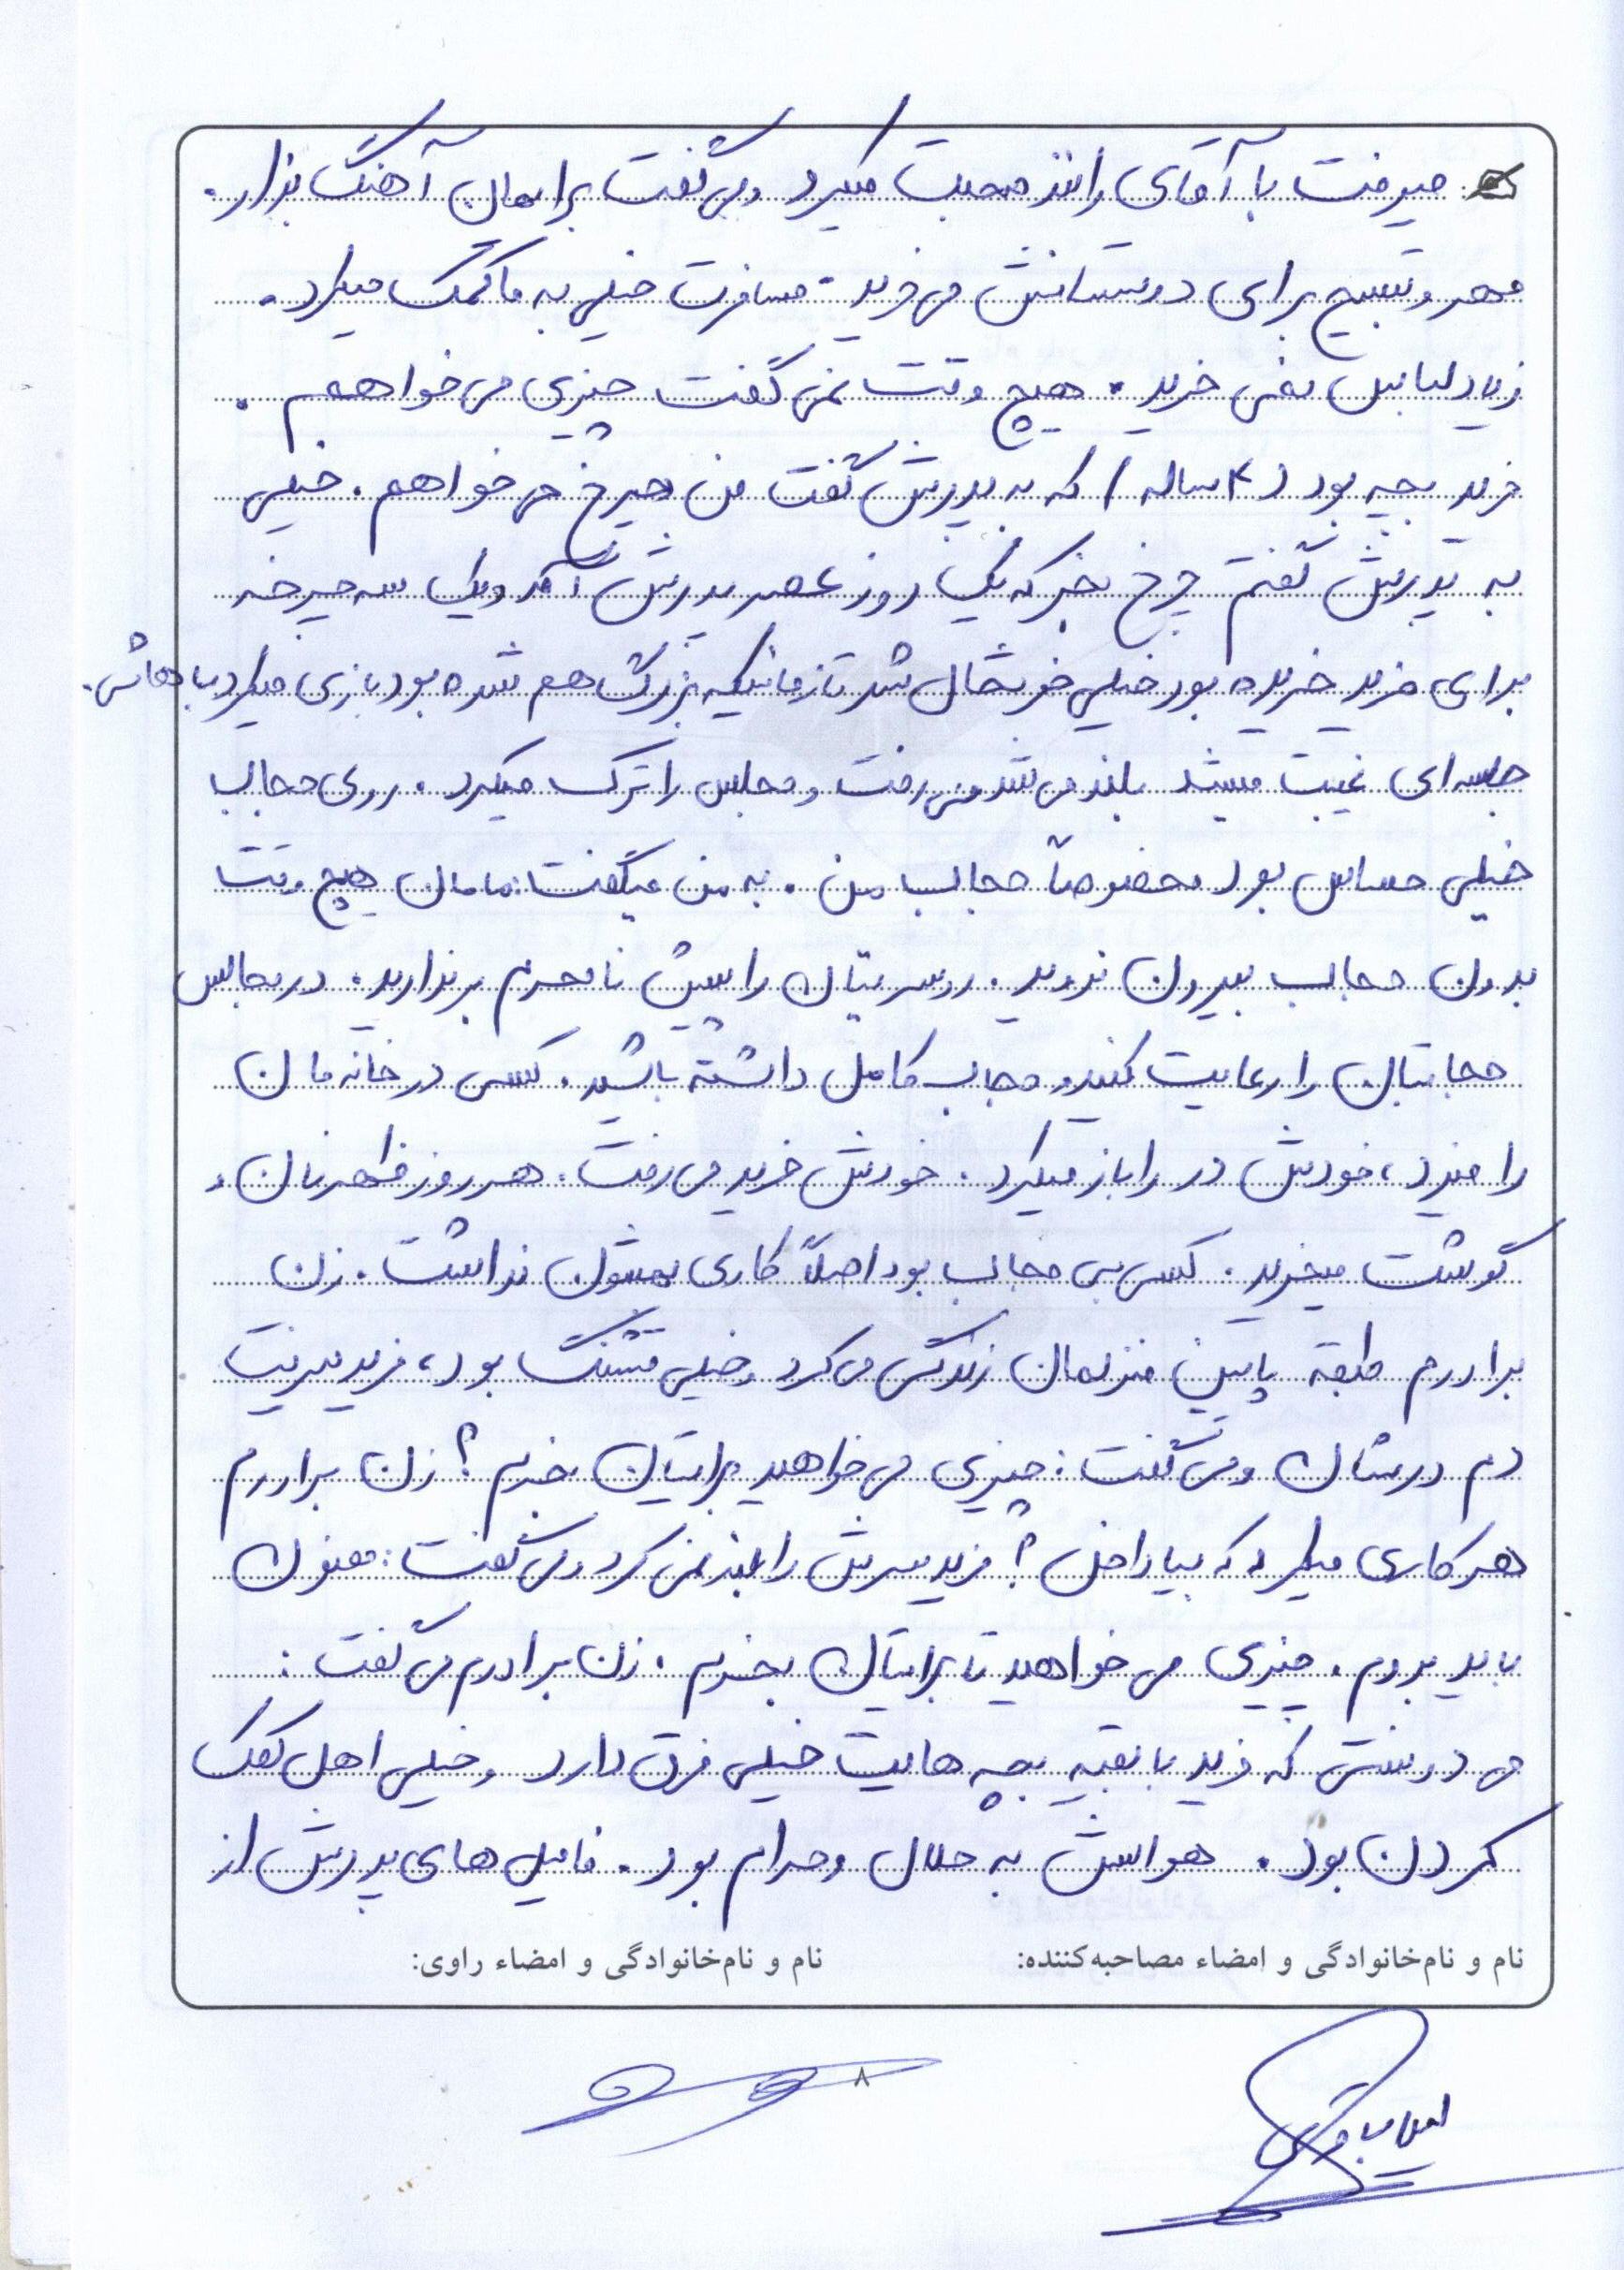 میرفت با آقای راننده صحبت میکرد و می گفت برایمان آهنگ بزار.
مهر و تسبیح برای دوستانش می خرید. مسافرت خیلی به ما کمک میکرد.
زیاد لباس نمی خرید. هیچ وقت نمی گفت چیزی می خواهم.
فرید بچه بود (۴ ساله) که به پدرش گفت من چرخ می خواهم. خیلی
به پدرش گفتم چرخ بخر که یک روز عصر پدرش آمد و یک سه چرخه
برای فرید خریده بود خیلی خوشحال شد تا زمانیکه بزرگ هم شده بود بازی میکرد باهاش.
جلسه ای غیبت میشد بلند می شد می رفت و مجلس را ترک میکرد. روی حجاب
خیلی حساس بود بخصوصاً حجاب من. به من میگفت: مامان هیچ وقت
بدون حجاب بیرون نروید. روسریتان را پیش نامحرم برندارید. در مجالس
حجابتان را رعایت کنید و حجاب کامل داشته باشید. کسی در خانه مان
را میزد، خودش در را باز میکرد. خودش خرید می رفت. هر روز ظهر نان و
گوشت میخرید. کسی بی حجاب بود اصلاً کاری بهشون نداشت. زن
برادرم طبقه پایین منزلمان زندگی می کرد و خیلی قشنگ بود، فرید میرفت
دم درشان و می گفت: چیزی می خواهید برایتان بخرم؟ زن برادرم
هر کاری میکرد که بیا داخل؟ فرید سرش را بلند نمی کرد و می گفت: ممنون
باید بروم. چیزی می خواهید تا برایتان بخرم. زن برادرم می گفت:
می دونستی که فرید با بقیه بچه هایت خیلی فرق دارد و خیلی اهل کمک
کردن بود. هواسش به حلال و حرام بود. فامیل های پدرش از
نام و نام‌خانوادگی و امضاء مصاحبه‌کننده: نام و نام‌خانوادگی و امضاء راوی:
۸